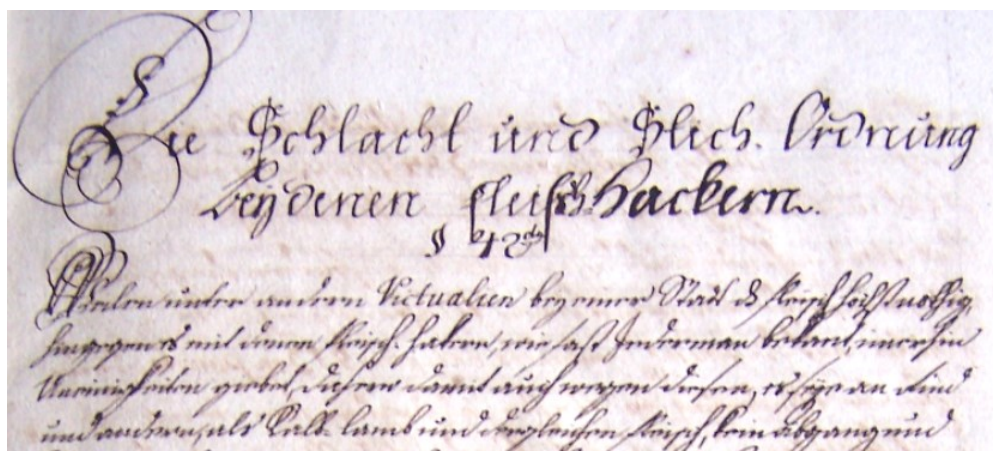 Die Schlacht und Stech. Ordnung
beÿ denen Fleisch-Hackern.
§ 42
Weilen unter andern Victualien beÿ einer Statt dz fleisch höchst nöthig,
hingegen es mit denen fleisch-hakern, wie fast Jederman bekant, imerhin
Uneinigkeiten giebet, dahero damit auch wegen diesen, es seÿe an Rind
und andern, als Kalb- lamb und dergleichen fleisch, kein abgang und